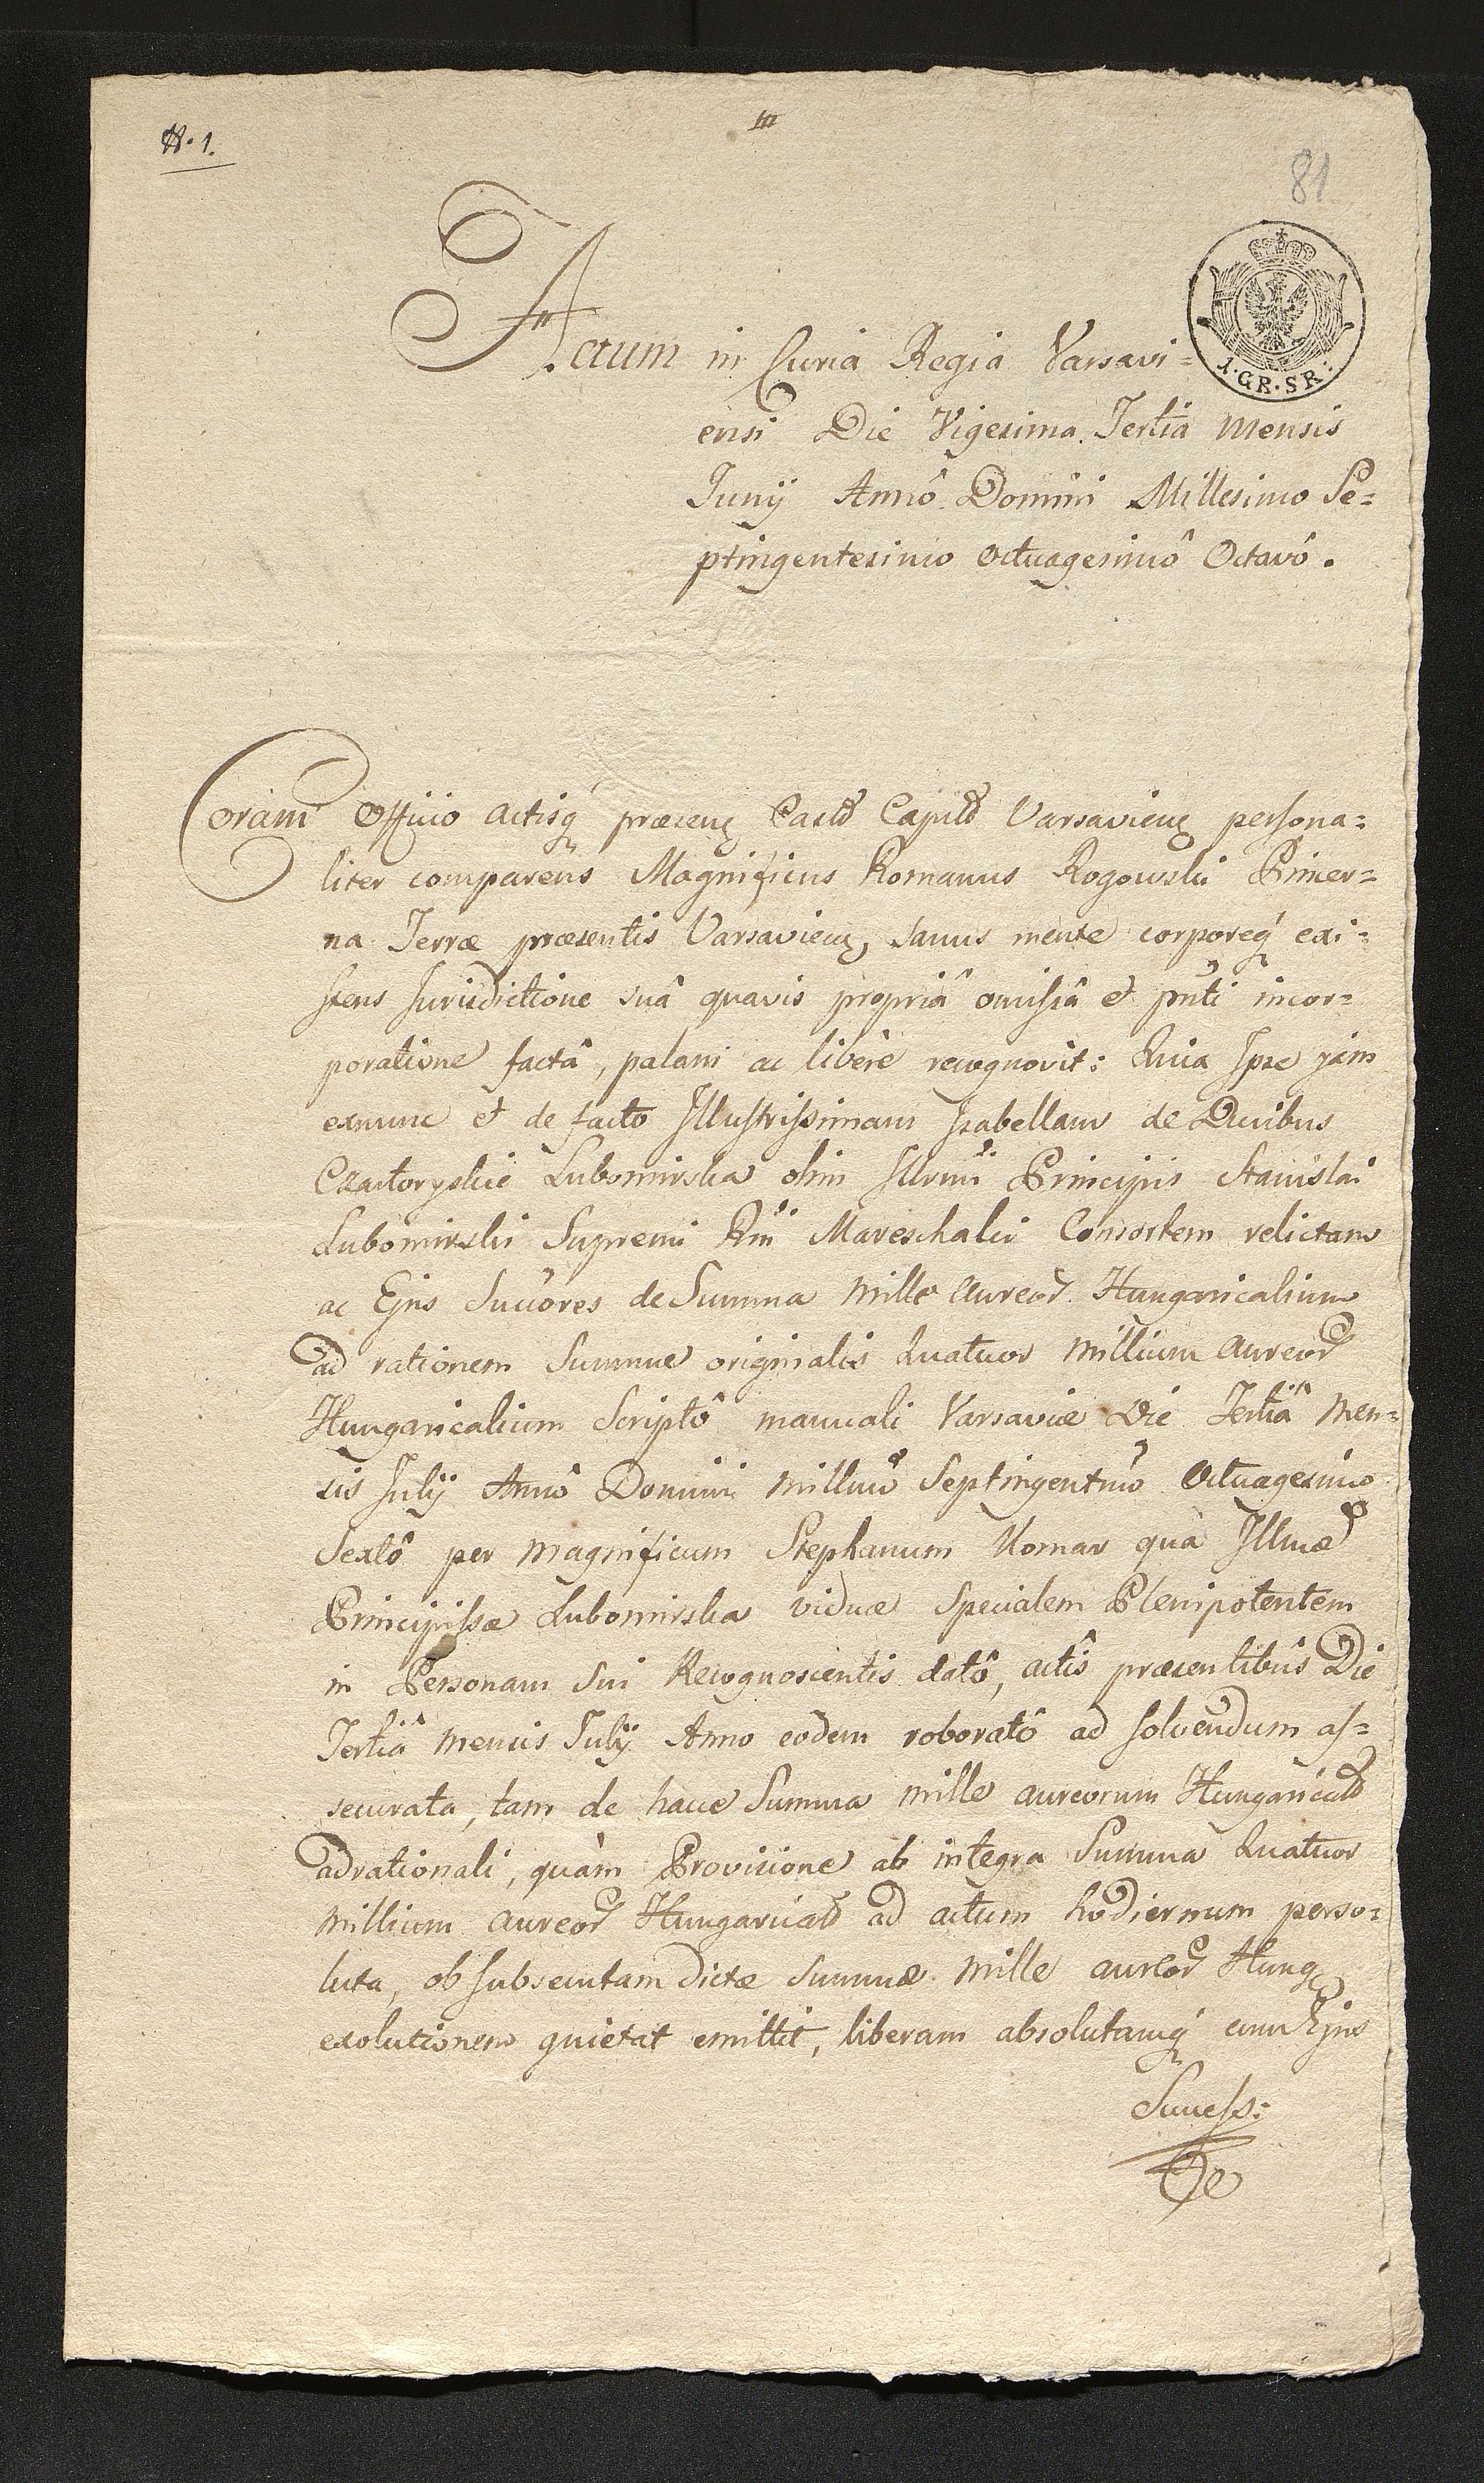 N. 1.
81
1. GR. SR:
Actum in Curia Regia Varsavi=
ensi Die Vigesima Tertia mensis
Junij Annô Domini Millesimo Se=
ptingentesimo Octuagesimô Octavô.
Coram Officio Actisq praesenq Castr Capitlr Varsavienq persona=
liter comparens Magnificus Romanus Rogowski Pincer=
na Terrae praesentis Varsavienq, sanus mente corporeq exi=
stens Jurisdictione suâ quavis propriâ omissâ et pnti incor=
poratione factâ, palam ac libere recognovit: Quia Ipse jam
exnunc et de facto Illustrissimam Isabellam de Ducibus
Czartoryskie Lubomirska olim Illrmi Principis Stanislai
Lubomirski Supremi Rni Mareschalci Consortem relictam
ac Ejus Succores de Summa mille aureor Hungaricalium
ad rationem Summae originalis Quatuor Millium aureor
Hungaricalium Scriptô manuali Varsaviae Die Tertiâ Men=
sis Julij Annô Domini Millmo Septingentmo Octuagesimo
Sextô per Magnificum Stephanum Komar quà Illmae
Principissae Lubomirska viduae Specialem Plenipotentem
in Personam Sui Recognoscentis datô, actîs praesentibûs Die
Tertiâ mensis Julij Anno eodem roboratô ad solvendum as=
securata, tam de hacce Summa mille aureorum Hungarical
adrationali, quàm Provisione ab integra Summa Quatuor
Millium aureor Hungarical ad actum hodiernum perso=
luta, ob subsecutam dictae Summae Mille aureor Hung
exolutionem quietat emittit, liberam absolutamq cum Ejus
Success: